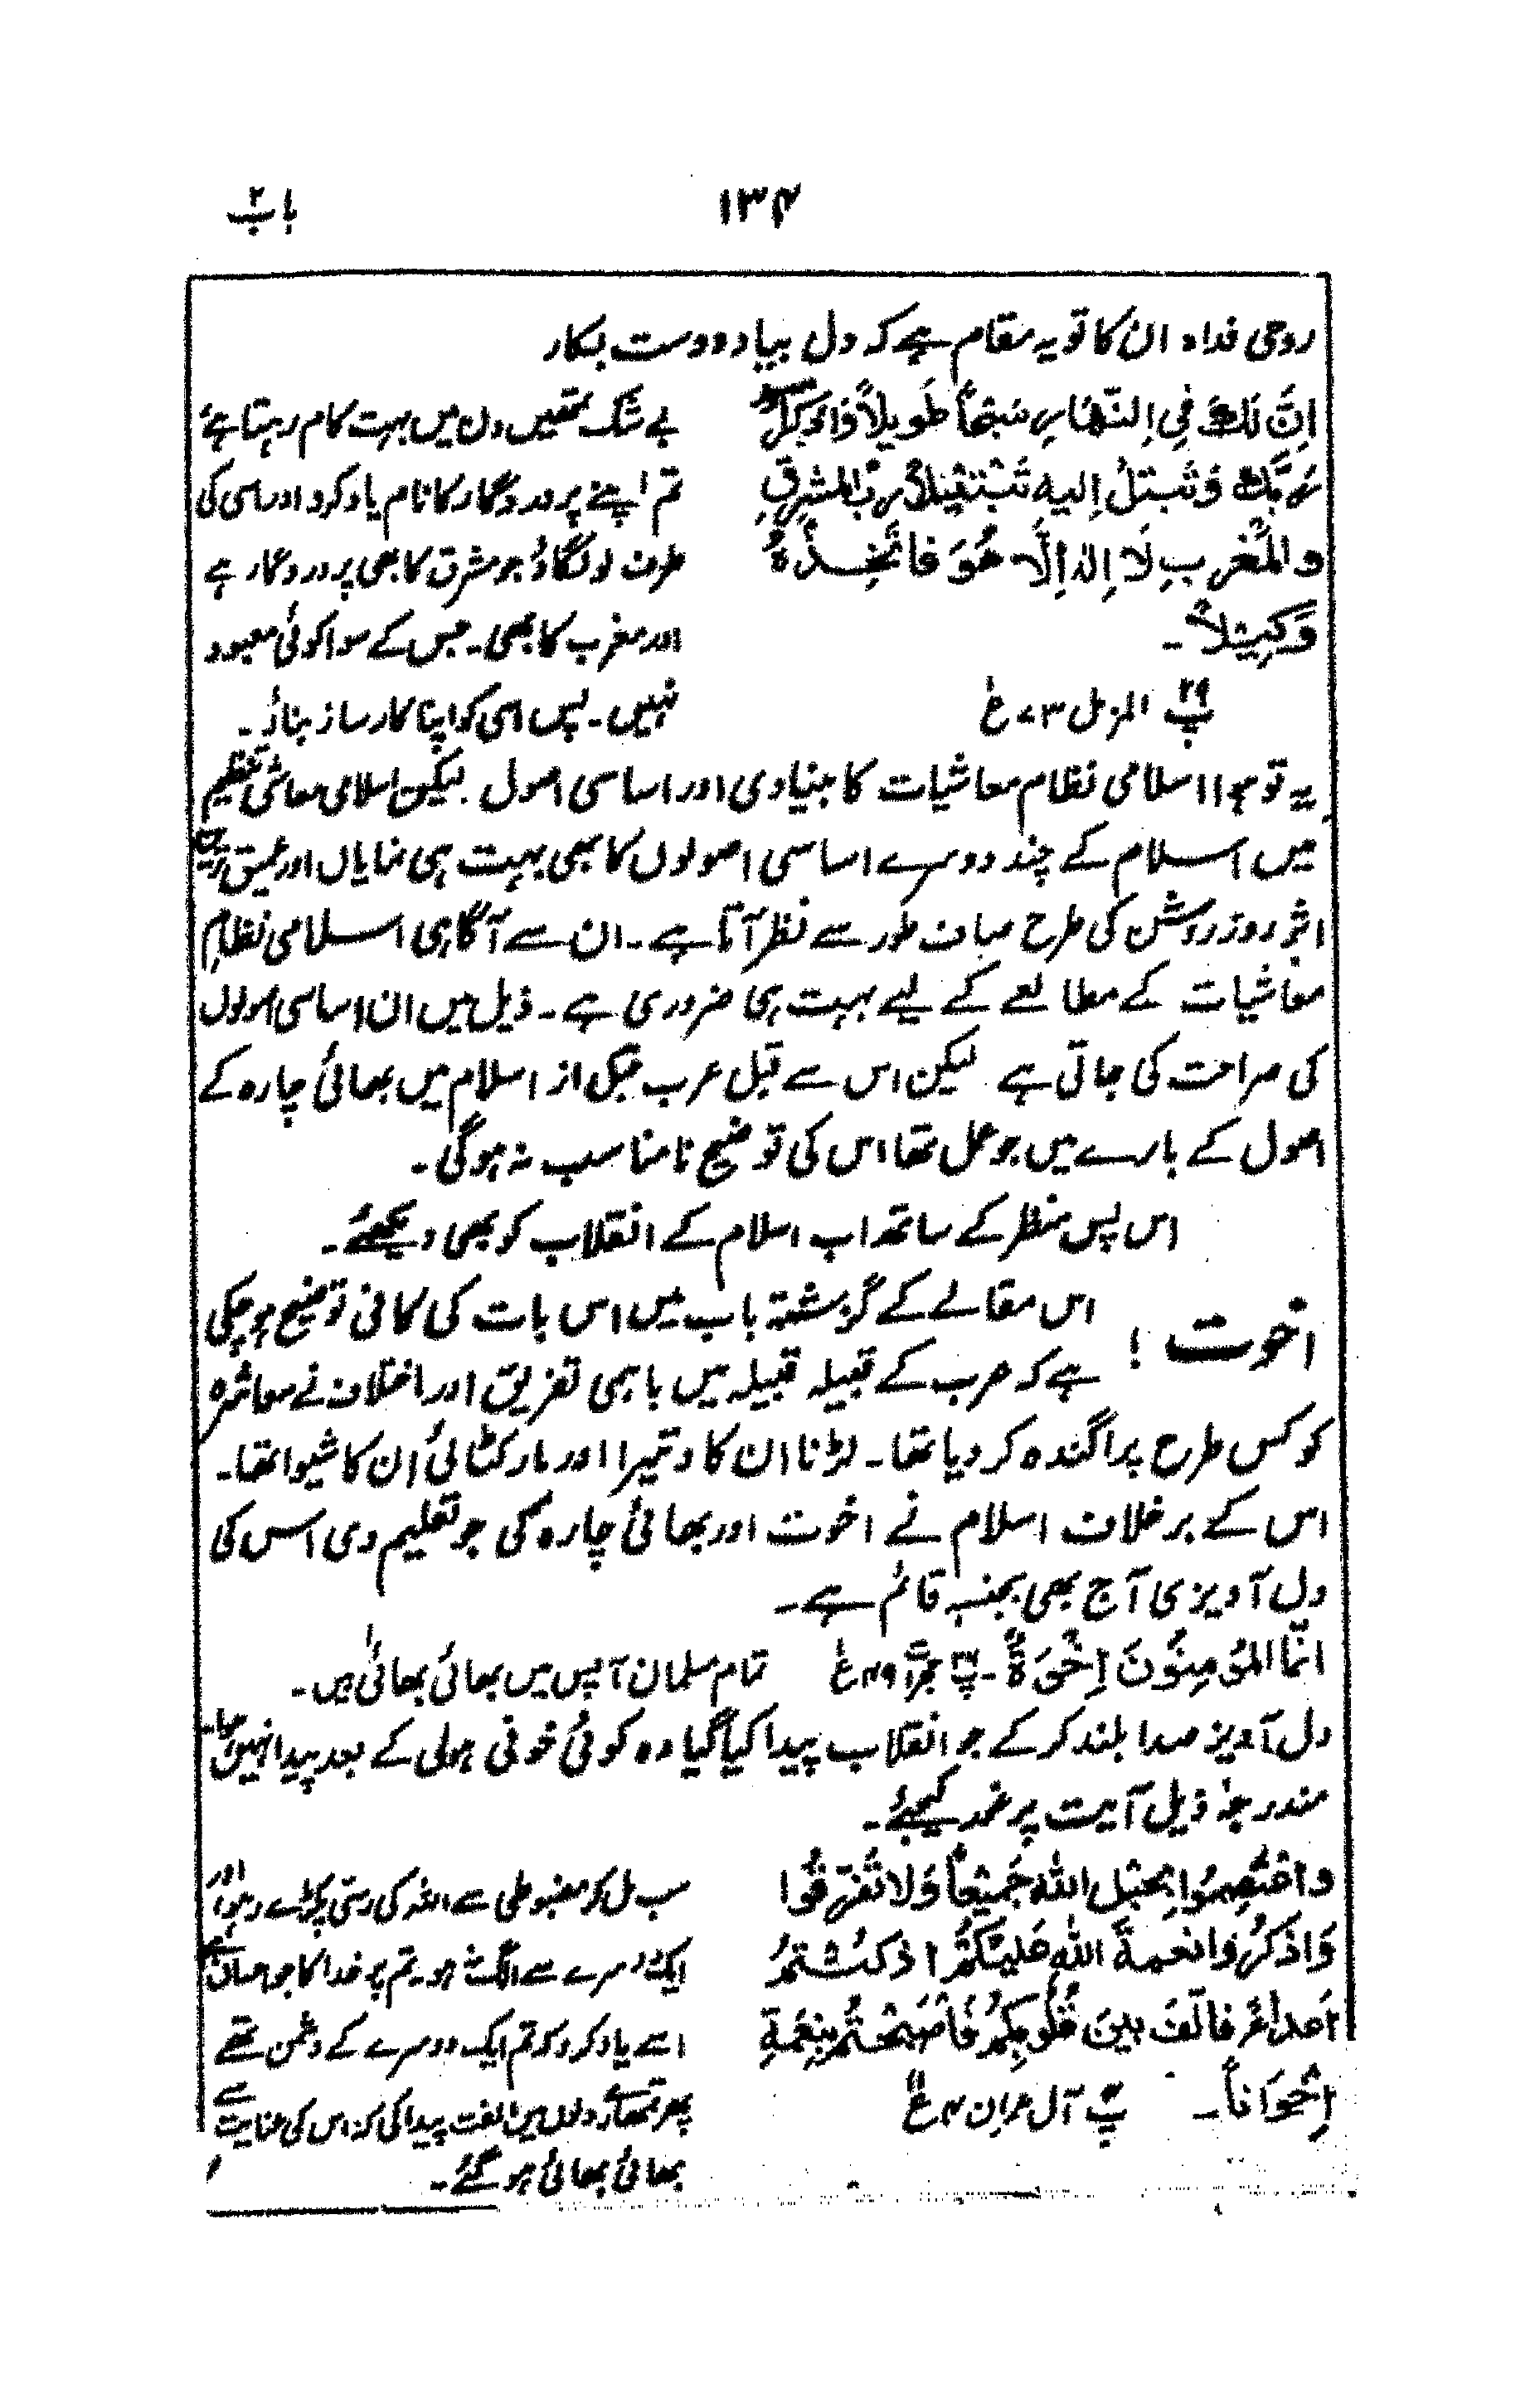 باب ۲
۱۳۴
روحی فداہ ان کا تو یہ مقام ہے کہ دل بیاد و دست بکار
اِنَّ لَكَ فِي اِلنّهَارِ سَبْحاً طَوِيلاً وَاذكر
رَبِّكَ وَتَبتلُ اِليهِ تَبْتيْلاً رب المشرِقِ
والمغربِ لَا اِلٰهَ اِلَّا هُوَ فاتَّخِذْهُ
وَكِيْلاً ـ
پ ۲۹ المزمل ۷۳ ع
بے شک تمھیں دن میں بہت کام رہتا ہے
تم اپنے پروردگار کا نام یاد کرو اور اسی کی
طرف لو لگاؤ جو مشرق کا بھی پروردگار ہے
اور مغرب کا بھی۔ جس کے سوا کوئی معبود
نہیں۔ پس اسی کو اپنا کارساز بناؤ۔
یہ تو ہوا اسلامی نظام معاشیات کا بنیادی اور اساسی اصول۔ لیکن اسلامی معاشی تنظیم
میں اسلام کے چند دوسرے اساسی اصولوں کا بھی بہت ہی نمایاں اور عمیق ترین
اثر روز روشن کی طرح صاف طور سے نظر آتا ہے۔ ان سے آگاہی اسلامی نظامِ
معاشیات کے مطالعے کے لیے بہت ہی ضروری ہے۔ ذیل میں ان اساسی اصولوں
کی صراحت کی جاتی ہے لیکن اس سے قبل عرب قبل از اسلام میں بھائی چارہ کے
اصول کے بارے میں جو عمل تھا اس کی توضیح نامناسب نہ ہوگی۔
اس پس منظر کے ساتھ اب اسلام کے انقلاب کو بھی دیکھئے۔
اخوت! اس مقالے کے گزشتہ باب میں اس بات کی کافی توضیح ہو چکی
ہے کہ عرب کے قبیلہ قبیلہ میں باہمی تفریق اور اختلاف نے معاشرہ
کو کس طرح پراگندہ کر دیا تھا۔ لڑنا ان کا وتیرا اور مار کٹائی اُن کا شیوا تھا۔
اس کے برخلاف اسلام نے اخوت اور بھائی چارہ کی جو تعلیم دی اس کی
دل آویزی آج بھی بجنسہٖ قائم ہے۔
انّما المؤمِنُونَ اِخْوَةٌ ـ پ ۲۶ حجرات ۴۹ ع تمام مسلمان آپس میں بھائی بھائی ہیں۔
دل آویز صدا بلند کر کے جو انقلاب پیدا کیا گیا وہ کوئی خونی ہولی کے بعد پیدا نہیں ہوا۔
مندرجہ ذیل آیت پر غور کیجئے۔
واعْتَصِمُوا بِحَبْلِ اللهِ جَمِيْعاً وَلا تَفَرقُوا
وَاذكرُوا نعمةَ اللهِ عَليْكُمْ اذ كنْتمُ
اَعداءً فالّفَ بينَ قُلُوبِكمْ فَأصْبَحْتُم بِنِعْمَةِ
اِخْوَاناً ـ پ آل عمران ۳ ع ۱۱
سب مل کر مضبوطی سے اللہ کی رسّی پکڑے رہو اور
ایک دوسرے سے الگ نہ ہو۔ تم پر خدا کا جو احسان ہے
اسے یاد کرو کہ تم ایک دوسرے کے دشمن تھے
پھر تمھارے دلوں میں الفت پیدا کی کہ اس کی عنایت سے
بھائی بھائی ہو گئے۔